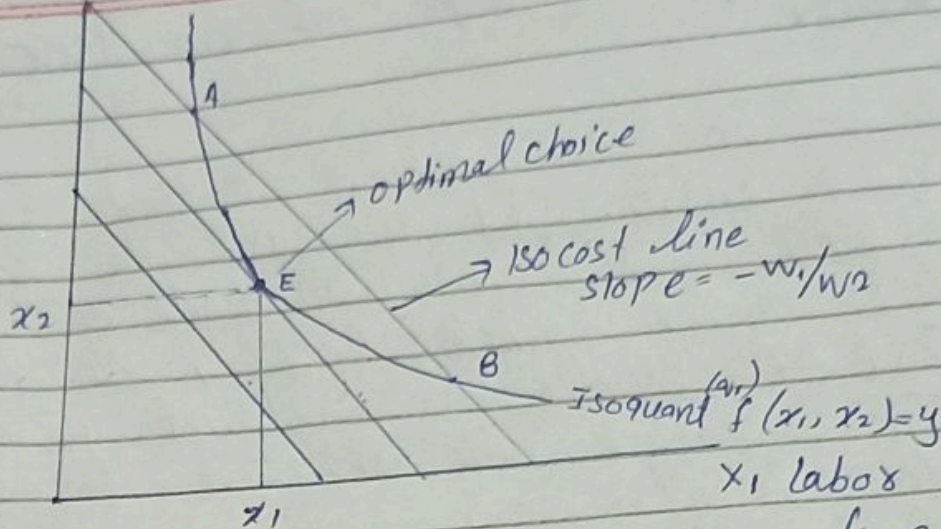 A
optimal choice
E
Isocost line
slope = -w1/w2
x2
B
Isoquant f(x1, x2)=y
x1 labor
x1